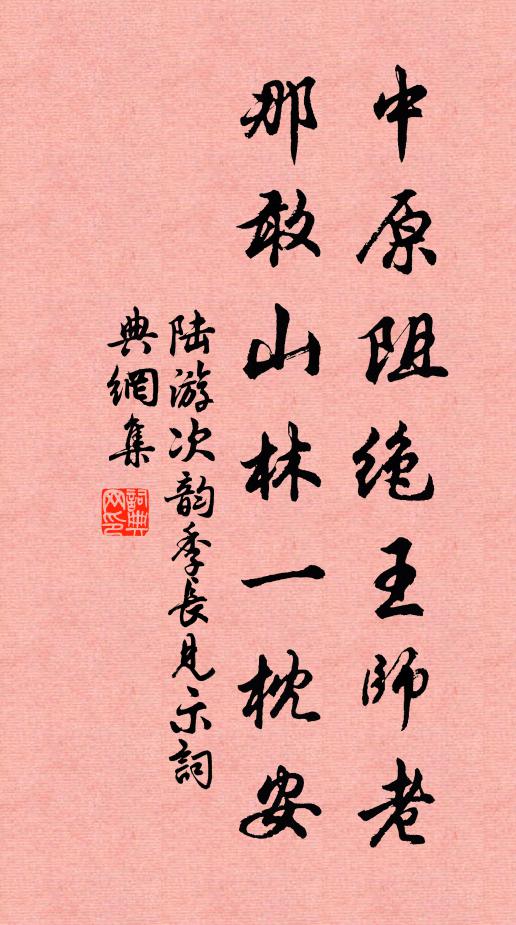 中原阻绝王師老
那敢山林一枕安
陆游次韵季長見示詞
典網集
詞典网印